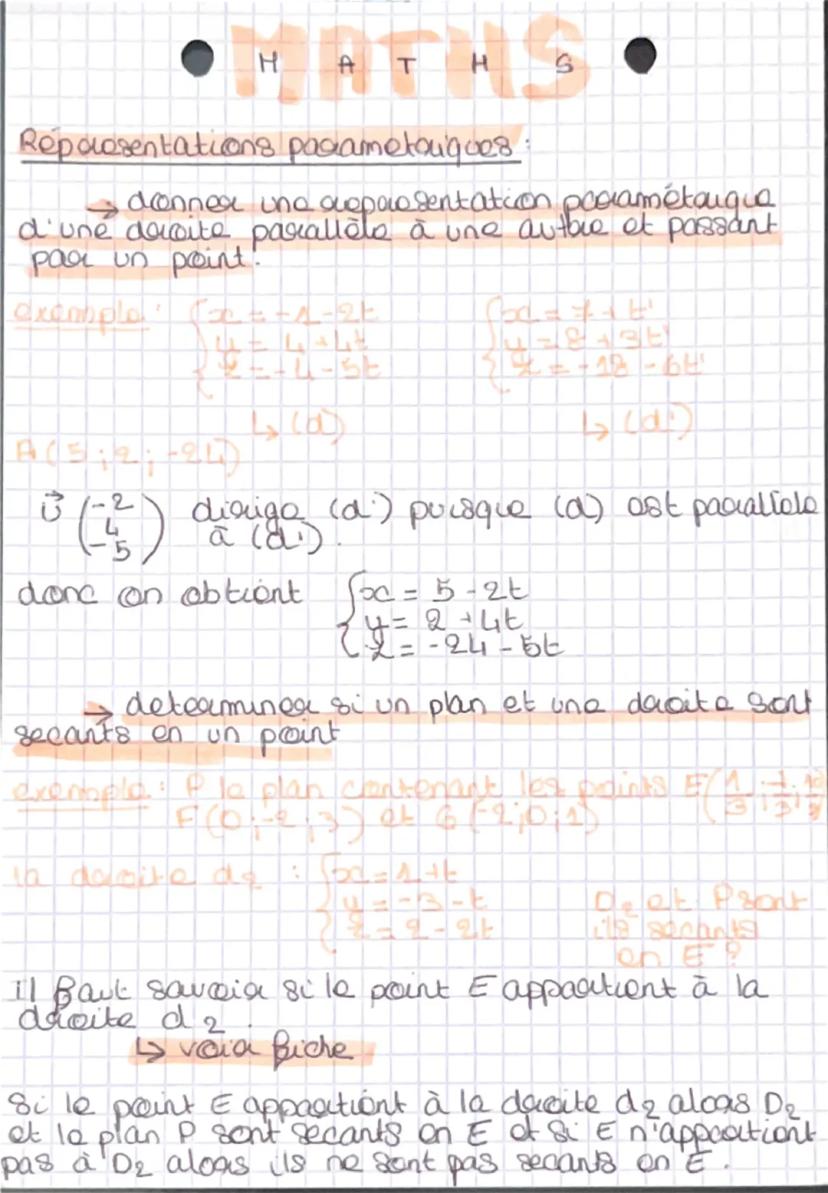 MATHS
Représentations parametriques :
→ donner une représentation paramétrique
d'une droite parallèle à une autre et passant
par un point.
exemple : { x = -1 - 2t { x = 7 + t'
y = 4 + 4t y = 8 + 3t'
z = -4 - 5t z = -18 - 6t'
↳ (d) ↳ (d')
A (5 ; 2 ; -24)
u⃗ (-2 4 -5) dirige (d') puisque (d) est parallele
à (d').
donc on obtient { x = 5 - 2t
y = 2 + 4t
z = -24 - 5t
→ determiner si un plan et une droite sont
secants en un point
exemple : P le plan contenant les points E(1/3 ;
F(0 ; -2 ; 3) et G(-2 ; 0 ; 1)
la droite d2 : { x = 1 + t
y = -3 - t D2 et P sont
z = 2 - 2t ils secants
en E ?
il faut savoir si le point E appartient à la
droite d2.
↳ voir fiche
Si le point E appartient à la droite d2 alors D2
et le plan P sont secants en E et si E n'appartient
pas à D2 alors ils ne sont pas secants en E.